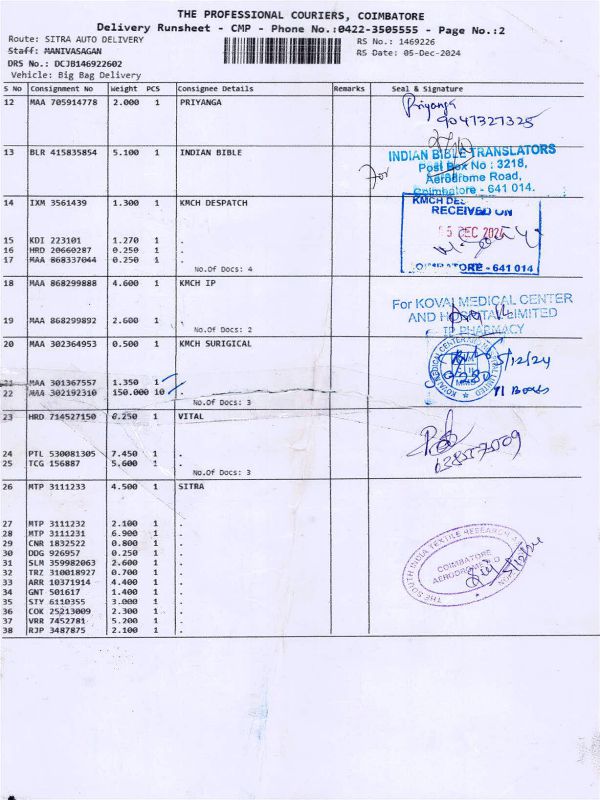 THE PROFESSIONAL COURIERS, COIMBATORE
Delivery Runsheet - CMP - Phone No.:0422-3505555 - Page No.:2
Route: SITRA AUTO DELIVERY
RS No.: 1469226
Staff: MANIVASAGAN
RS Date: 05-Dec-2024
DRS No.: DCJB146922602
Vehicle: Big Bag Delivery
S No Consignment No Weight PCS Consignee Details Remarks Seal & Signature
12 MAA 705914778 2.000 1 PRIYANGA
Priyanga
9047327325
13 BLR 415835854 5.100 1 INDIAN BIBLE
For
INDIAN BIBLE TRANSLATORS
Post Box No : 3218,
Aerodrome Road,
Coimbatore - 641 014.
14 IXM 3561439 1.300 1 KMCH DESPATCH
KMCH DES
RECEIVED ON
5 DEC 2024
COIMBATORE - 641 014
15 KDI 223101 1.270 1 .
16 HRD 20660287 0.250 1 .
17 MAA 868337044 0.250 1 .
No.Of Docs: 4
18 MAA 868299888 4.600 1 KMCH IP
For KOVAI MEDICAL CENTER
AND HOSPITAL LIMITED
IP PHARMACY
19 MAA 868299892 2.600 1 .
No.Of Docs: 2
20 MAA 302364953 0.500 1 KMCH SURIGICAL
5/12/24
21 MAA 301367557 1.350 1 .
22 MAA 302192310 150.000 10 .
No.Of Docs: 3
23 HRD 714527150 0.250 1 VITAL
24 PTL 530081305 7.450 1 .
25 TCG 156887 5.600 1 .
No.Of Docs: 3
26 MTP 3111233 4.500 1 SITRA
27 MTP 3111232 2.100 1 .
28 MTP 3111231 6.900 1 .
29 CNR 1832522 0.800 1 .
30 DDG 926957 0.250 1 .
31 SLM 359982063 2.600 1 .
32 TRZ 310018927 0.700 1 .
33 ARR 10371914 4.400 1 .
34 GNT 501617 1.400 1 .
35 STY 6110355 3.000 1 .
36 COK 25213009 2.300 1 .
37 VRR 7452781 5.200 1 .
38 RJP 3487875 2.100 1 .
THE SOUTH INDIA TEXTILE RESEARCH
COIMBATORE
AERODROME P O
5/12/24